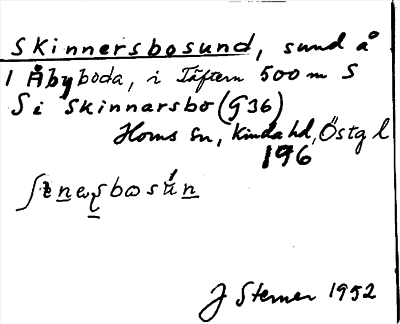 Skinnersbosund, sund å
1 Åbyboda, i Täftern 500 m S
S i Skinnarsbo (G 36)
Horns sn, Kinda hd, Östg l
196
J Sterner 1952